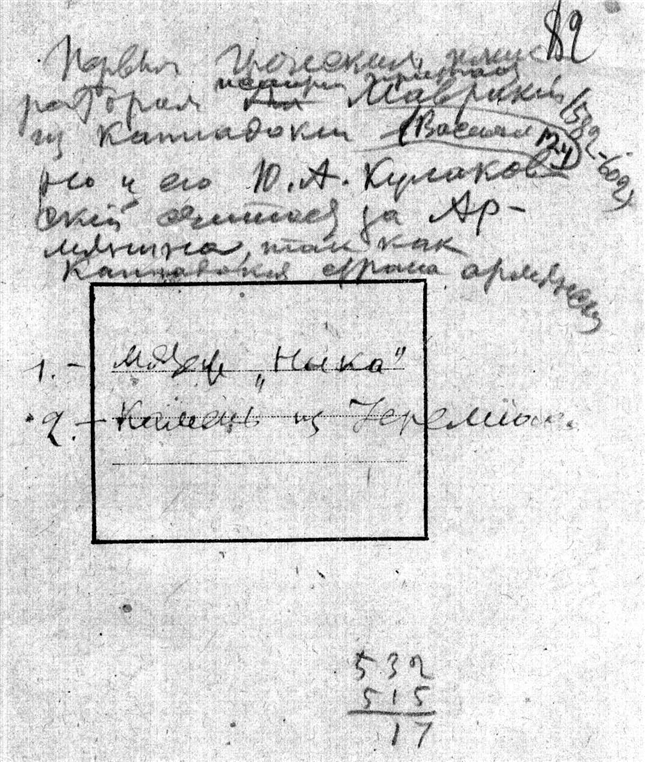 82
Первым греческим импе-
ратором Маврикий (582-602)
из Каппадокии (Василий
но и его Ю. А. Кулаков-
ский считает за Ар-
мянина, так как
Каппадокия страна армянск
1. - "Ника"
2. - Камень из
532
515
17